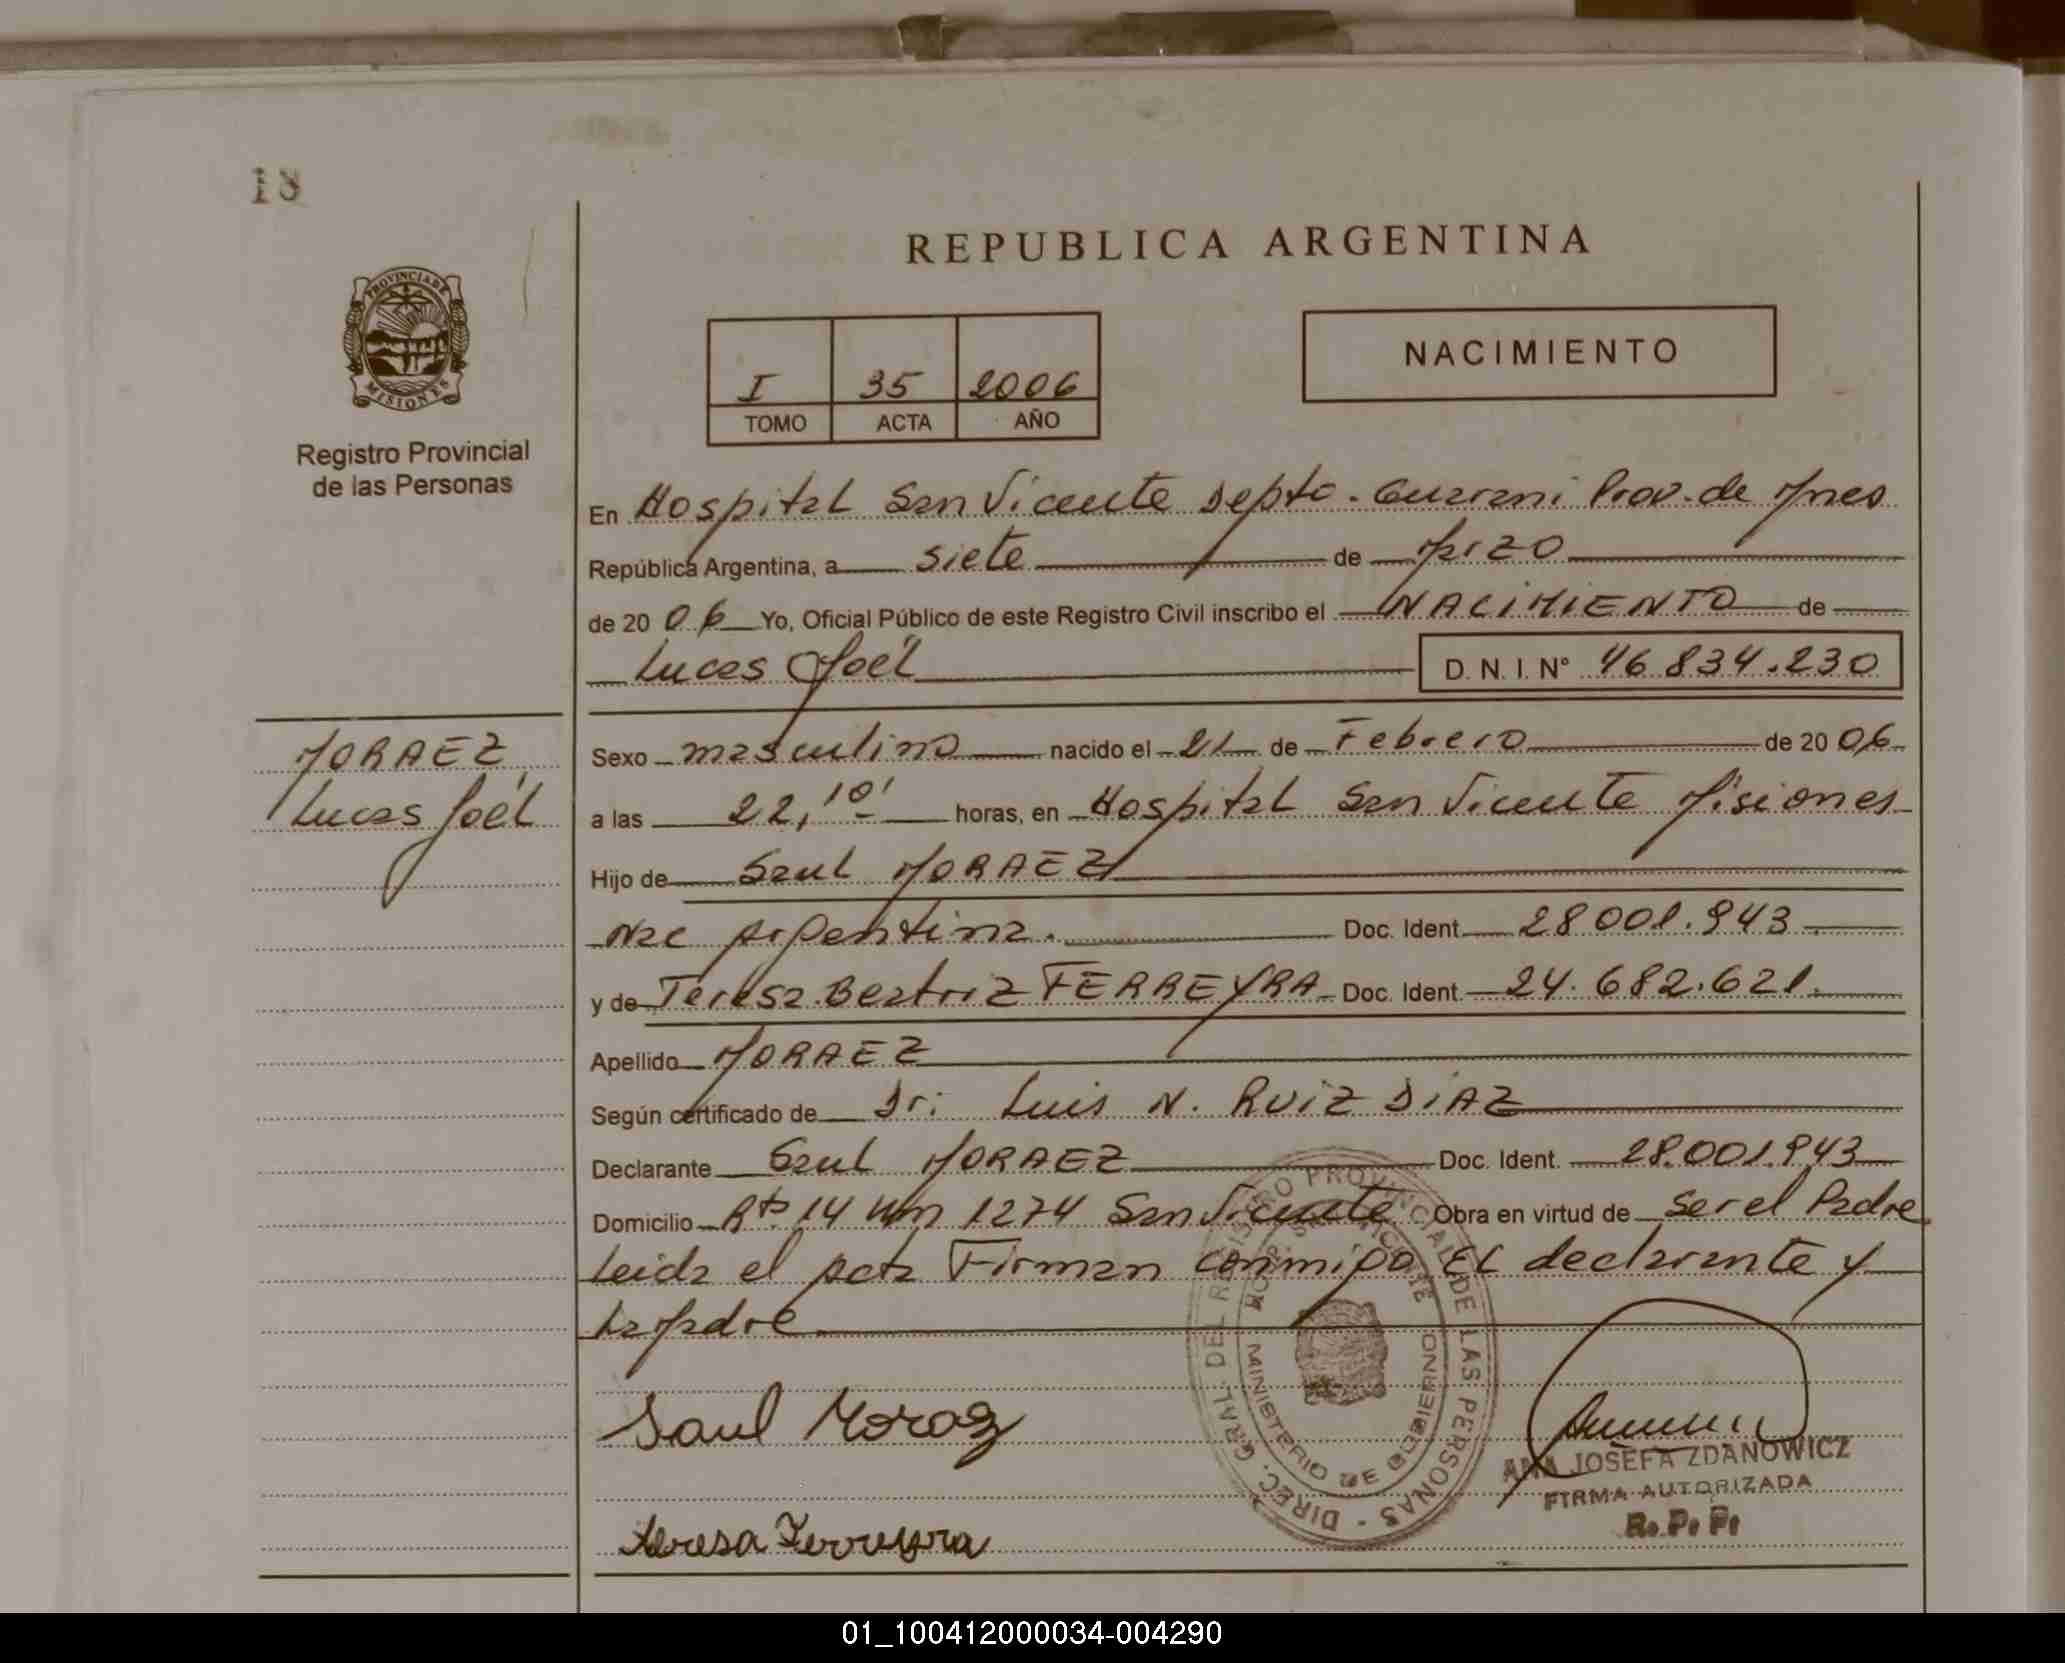 18
REPUBLICA ARGENTINA
PROVINCIA DE
MISIONES
Registro Provincial
de las Personas
I 35 2006
TOMO ACTA AÑO
NACIMIENTO
En Hospital San Vicente Depto. Guarani Prov. de Mnes
República Argentina, a siete de Marzo
de 20 06 Yo, Oficial Público de este Registro Civil inscribo el NACIMIENTO de
Lucas Joél D. N. I. N° 46.834.230
MORAEZ
Lucas Joél
Sexo masculino nacido el 21 de Febrero de 20 06
a las 22,10' horas, en Hospital San Vicente Misiones
Hijo de Saul MORAEZ
Nac Argentina. Doc. Ident. 28.001.943
y de Teresa Beatriz FERREYRA Doc. Ident. 24.682.621.
Apellido MORAEZ
Según certificado de Dr: Luis N. RUIZ DIAZ
Declarante Saul MORAEZ Doc. Ident. 28.001.943
Domicilio Rta 14 Km 1274 San Vicente Obra en virtud de ser el Padre
Leida el acta Firman conmigo EL declarante y
La Madre
Saul Moraez
Teresa Ferreyra
DIREC. GRAL. DEL REGISTRO PROVINCIAL DE LAS PERSONAS -
HOSP. SAN VICENTE
MINISTERIO DE GOBIERNO
ANA JOSEFA ZDANOWICZ
FIRMA AUTORIZADA
R. P. P.
01_100412000034-004290